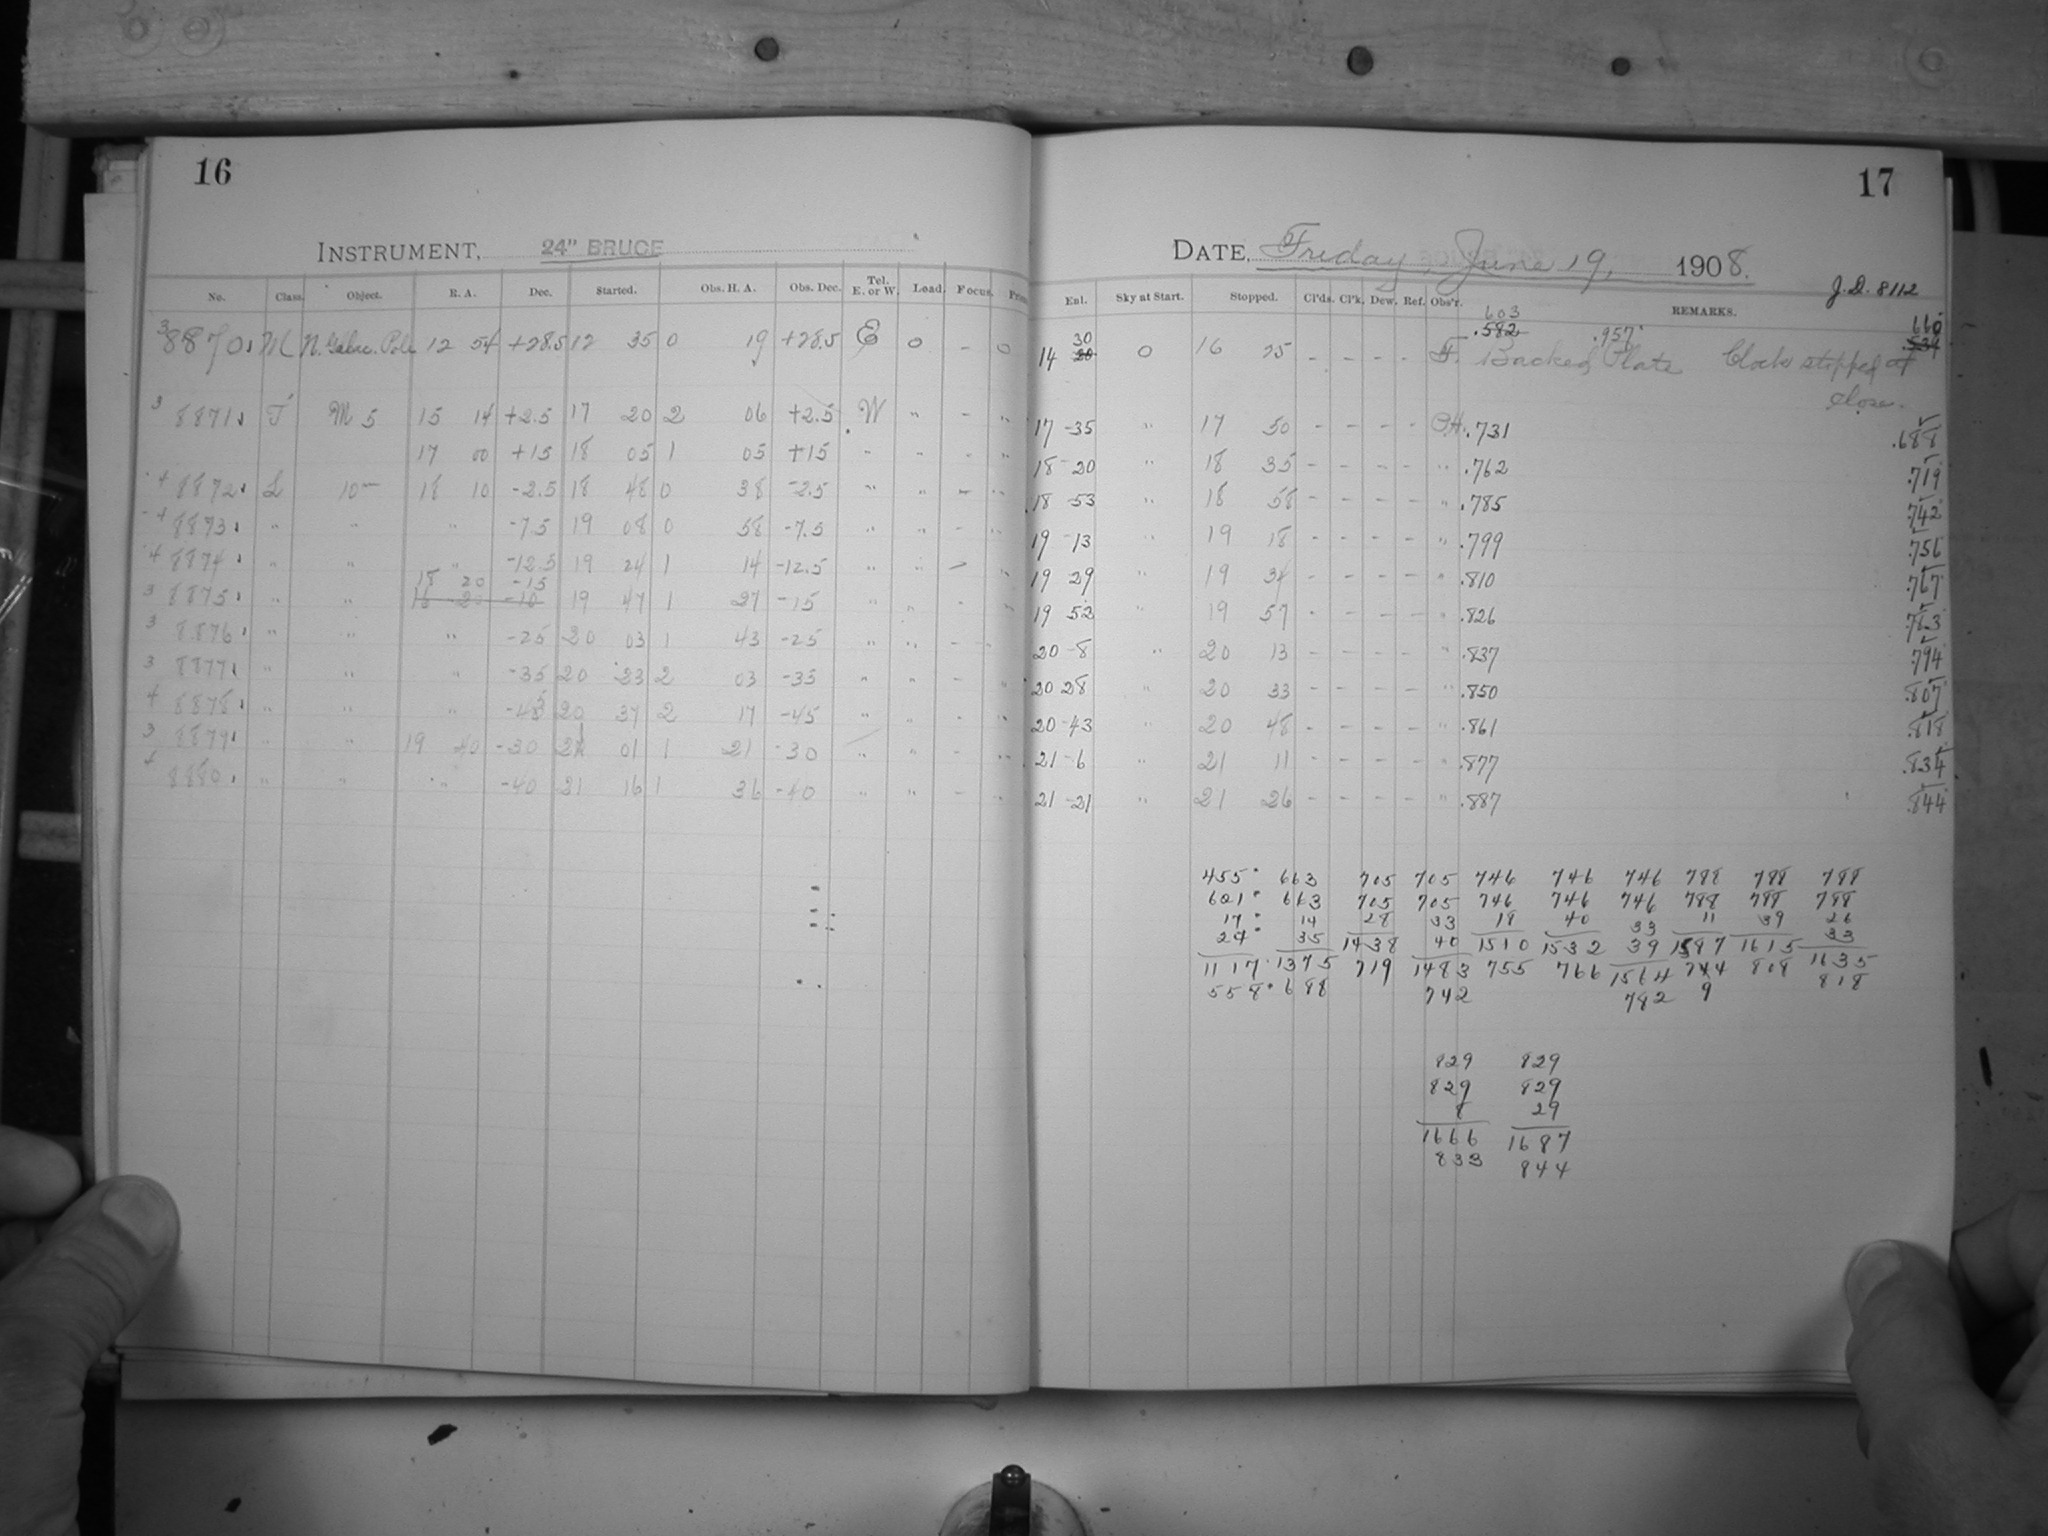 16
INSTRUMENT, 24" BRUCE
No. Class. Object. R. A. Dec. Started. Obs. H. A. Obs. Dec. Tel. E. or W. Load. Focus.
3 8870 M N. Galac. Pole 12 54 +28.5 12 35 0 19 +28.5 E 0 - 0
3 8871 T M 5 15 14 +2.5 17 20 2 06 +2.5 W " - "
17 00 +15 18 05 1 05 +15 " " " "
4 8872 L 10m 18 10 -2.5 18 48 0 38 -2.5 " " - "
4 8873 " " " -7.5 19 08 0 58 -7.5 " " - "
4 8874 " " " -12.5 19 24 1 14 -12.5 " " - "
18 20 -15
3 8875 " " 18 20 -10 19 47 1 27 -15 " " - "
3 8876 " " " -25 20 03 1 43 -25 " " - "
3 8877 " " " -35 20 23 2 03 -35 " " - "
4 8878 " " " -45 20 37 2 17 -45 " " - "
3 8879 " " 19 40 -30 21 01 1 21 -30 " " - "
4 8880 " " " -40 21 16 1 36 -40 " " - "
17
DATE, Friday, June 19, 1908.
J.D. 8112
Enl. Sky at Start. Stopped. Cl'ds. Cl'k. Dew. Ref. Obs'r. REMARKS.
603 660
30 .582 .957 .534
14 20 0 16 25 - - - - F. Backed Plate Clock stopped at
close.
17 -35 " 17 50 - - - - C.H. .731 .688
18 -20 " 18 35 - - - - " .762 .719
18 -53 " 18 58 - - - - " .785 .742
19 -13 " 19 18 - - - - " .799 .756
19 29 " 19 34 - - - - " .810 .767
19 52 " 19 57 - - - - " .826 .783
20 -8 " 20 13 - - - - " .837 .794
20 28 " 20 33 - - - - " .850 .807
20 -43 " 20 48 - - - - " .861 .818
21 -6 " 21 11 - - - - " .877 .834
21 -21 " 21 26 - - - - " .887 .844
455 663 705 705 746 746 746 788 788 788
601 663 705 705 746 746 746 788 788 788
17 14 28 33 18 40 33 11 39 26
24 35 1438 40 1510 1532 39 1587 1615 33
1117 1375 719 1483 755 766 1564 744 808 1635
558 688 742 782 9 818
829 829
829 829
8 29
1666 1687
833 844